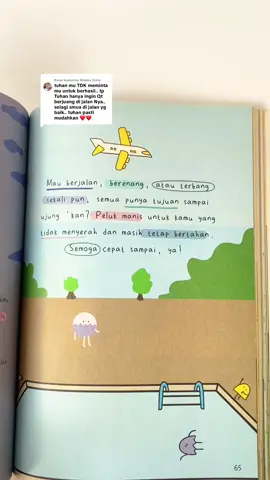 tuhan mu TDK meminta
mu untuk berhasil.. tp
Tuhan hanya ingin Qt
berjuang di jalan Nya..
selagi smua di jalan yg
baik.. tuhan pasti
mudahkan ❤️❤️
Mau berjalan, berenang, atau terbang
sekali pun, semua punya tujuan sampai
ujung 'kan? Peluk manis untuk kamu yang
tidak menyerah dan masih tetap bertahan.
Semoga cepat sampai, ya!
65